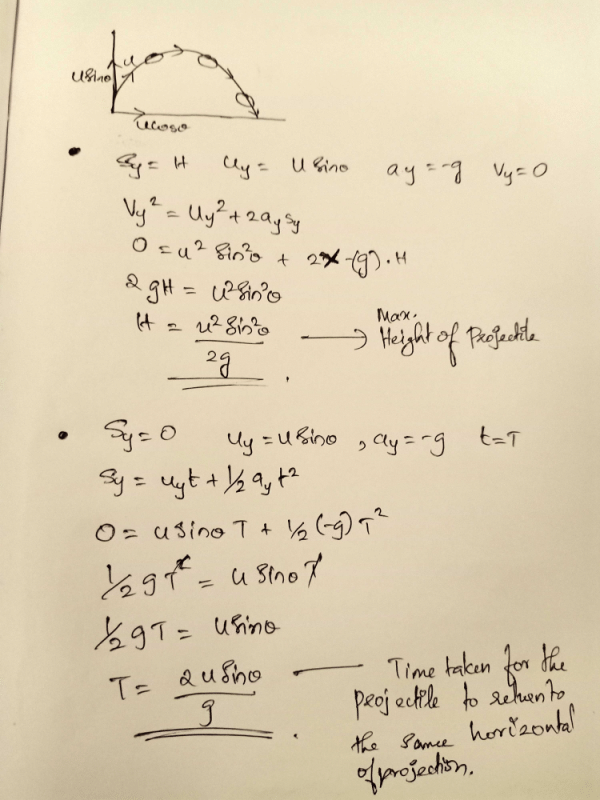 u
usinθ
ucosθ
• Sy = H uy = u sinθ ay = -g Vy = 0
Vy² = uy² + 2aySy
0 = u² sin²θ + 2×-(g).H
2gH = u²sin²θ
H = u²sin²θ/2g → Max. Height of Projectile
• Sy = 0 uy = usinθ, ay = -g t = T
Sy = uyt + 1/2 ayt²
0 = usinθ T + 1/2 (-g) T²
1/2 gT² = u sinθ T
1/2 gT = usinθ
T = 2u sinθ/g. — Time taken for the
projectile to return to
the same horizontal
of projection.